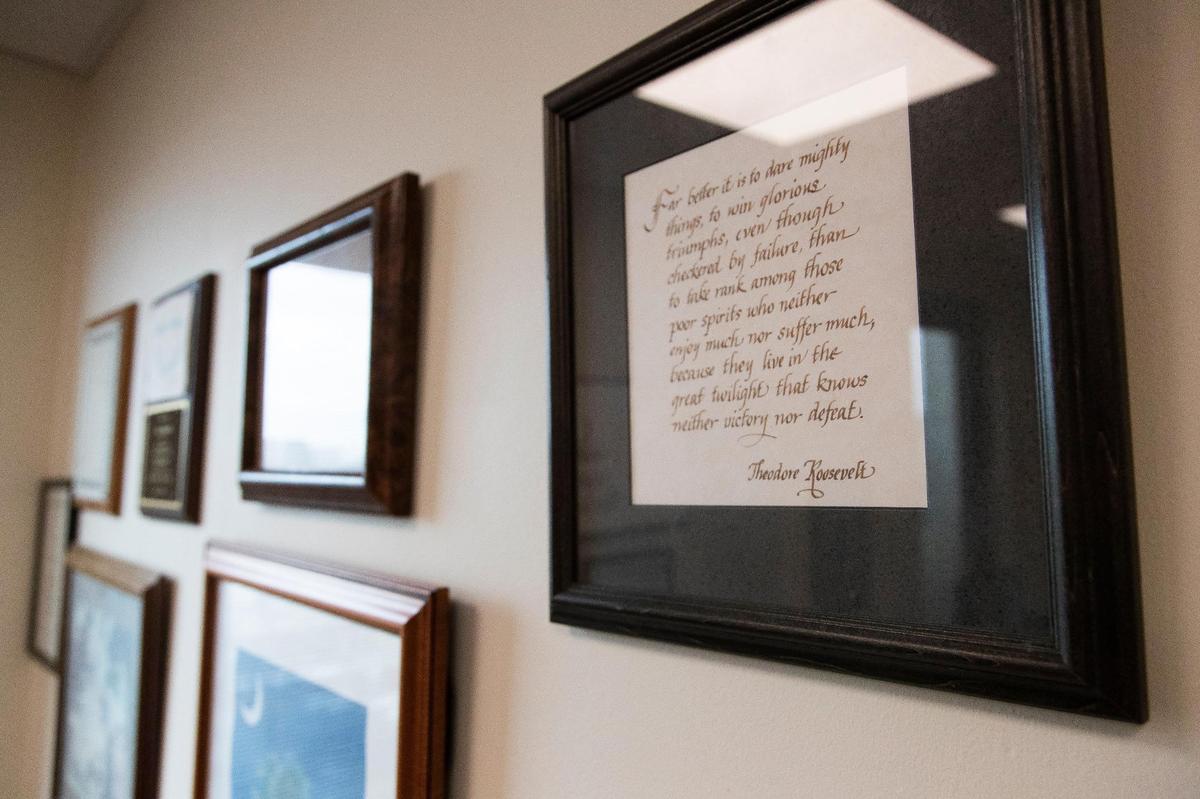 Far better it is to dare mighty
things, to win glorious
triumphs, even though
checkered by failure, than
to take rank among those
poor spirits who neither
enjoy much nor suffer much,
because they live in the
great twilight that knows
neither victory nor defeat.
Theodore Roosevelt